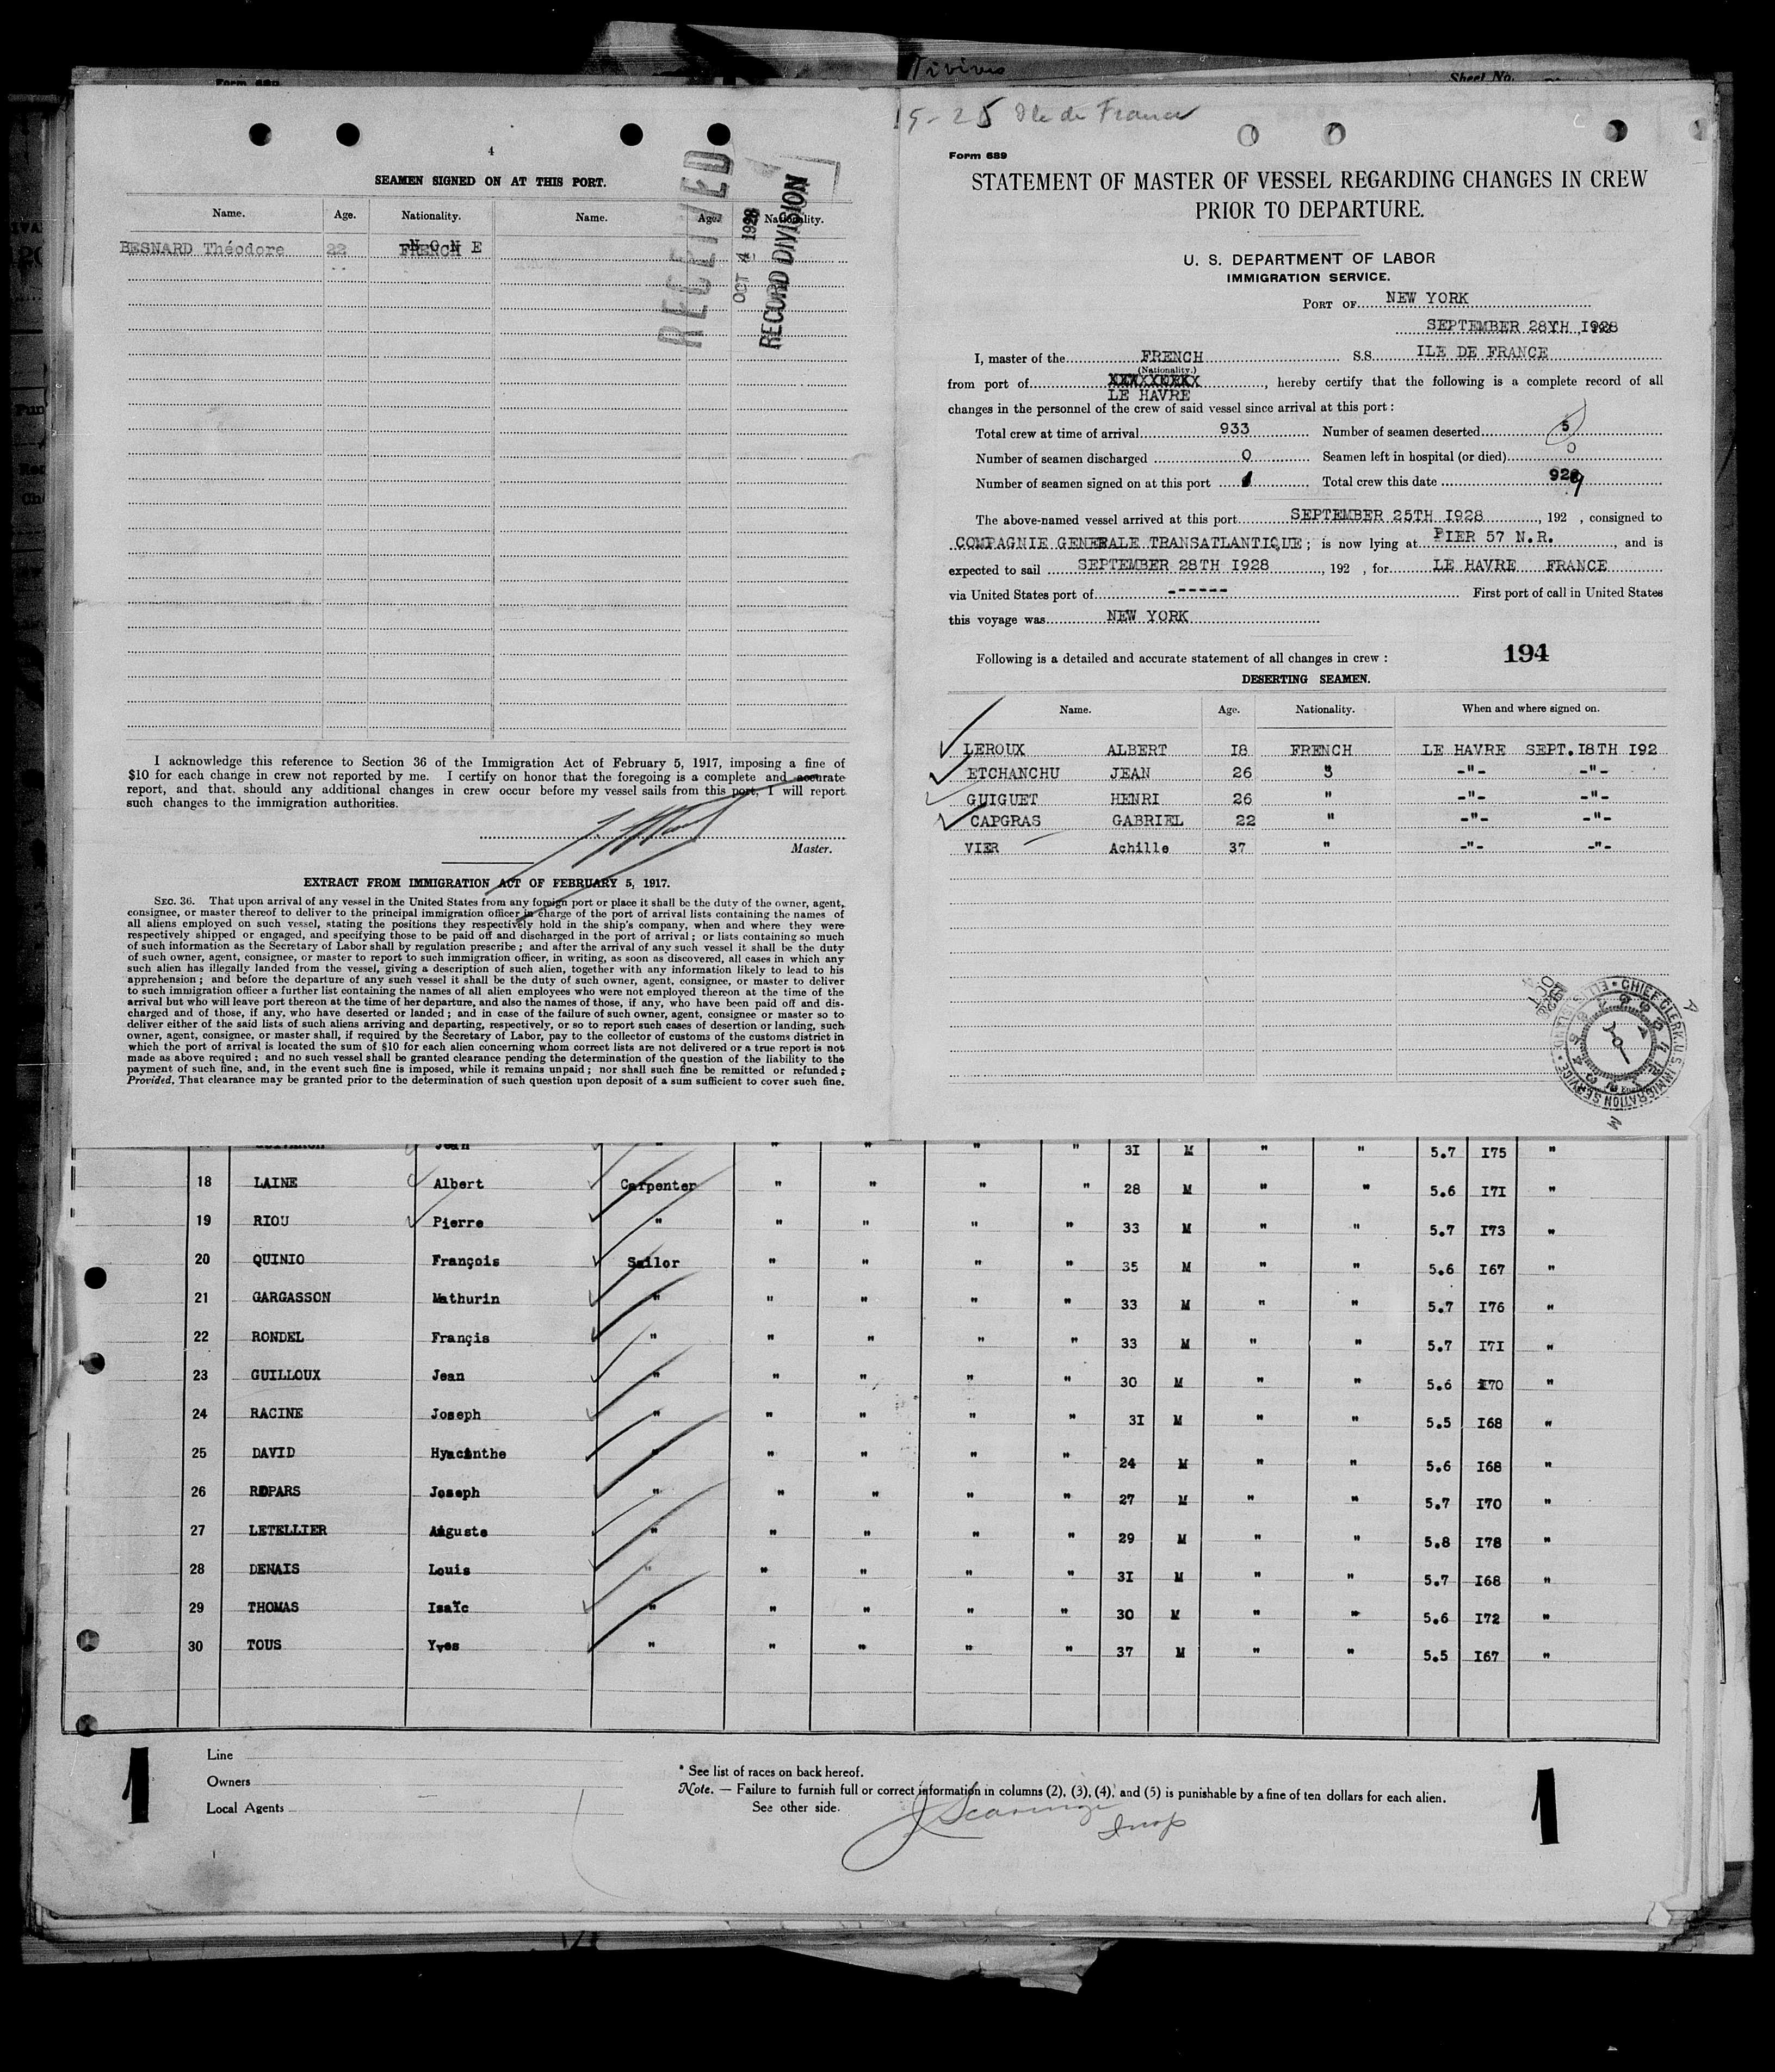 Form 689
Sheet No.
4
SEAMEN SIGNED ON AT THIS PORT.
Name. Age. Nationality. Name. Age. Nationality.
BESNARD Théodore 22 FRENCH
NONE
RECEIVED
OCT 4 1928
RECORD DIVISION
I acknowledge this reference to Section 36 of the Immigration Act of February 5, 1917, imposing a fine of
$10 for each change in crew not reported by me. I certify on honor that the foregoing is a complete and accurate
report, and that, should any additional changes in crew occur before my vessel sails from this port, I will report
such changes to the immigration authorities.
Master.
EXTRACT FROM IMMIGRATION ACT OF FEBRUARY 5, 1917.
SEC. 36. That upon arrival of any vessel in the United States from any foreign port or place it shall be the duty of the owner, agent,
consignee, or master thereof to deliver to the principal immigration officer in charge of the port of arrival lists containing the names of
all aliens employed on such vessel, stating the positions they respectively hold in the ship's company, when and where they were
respectively shipped or engaged, and specifying those to be paid off and discharged in the port of arrival; or lists containing so much
of such information as the Secretary of Labor shall by regulation prescribe; and after the arrival of any such vessel it shall be the duty
of such owner, agent, consignee, or master to report to such immigration officer, in writing, as soon as discovered, all cases in which any
such alien has illegally landed from the vessel, giving a description of such alien, together with any information likely to lead to his
apprehension; and before the departure of any such vessel it shall be the duty of such owner, agent, consignee, or master to deliver
to such immigration officer a further list containing the names of all alien employees who were not employed thereon at the time of the
arrival but who will leave port thereon at the time of her departure, and also the names of those, if any, who have been paid off and dis-
charged and of those, if any, who have deserted or landed; and in case of the failure of such owner, agent, consignee or master so to
deliver either of the said lists of such aliens arriving and departing, respectively, or so to report such cases of desertion or landing, such
owner, agent, consignee, or master shall, if required by the Secretary of Labor, pay to the collector of customs of the customs district in
which the port of arrival is located the sum of $10 for each alien concerning whom correct lists are not delivered or a true report is not
made as above required; and no such vessel shall be granted clearance pending the determination of the question of the liability to the
payment of such fine, and, in the event such fine is imposed, while it remains unpaid; nor shall such fine be remitted or refunded:
Provided, That clearance may be granted prior to the determination of such question upon deposit of a sum sufficient to cover such fine.
9-25 Ile de France
Form 689
STATEMENT OF MASTER OF VESSEL REGARDING CHANGES IN CREW
PRIOR TO DEPARTURE.
U. S. DEPARTMENT OF LABOR
IMMIGRATION SERVICE.
PORT OF NEW YORK
SEPTEMBER 28TH, I928
I, master of the FRENCH S.S. ILE DE FRANCE
(Nationality.)
from port of LE HAVRE, hereby certify that the following is a complete record of all
changes in the personnel of the crew of said vessel since arrival at this port:
Total crew at time of arrival 933 Number of seamen deserted 5
Number of seamen discharged 0 Seamen left in hospital (or died) 0
Number of seamen signed on at this port 1 Total crew this date 929
The above-named vessel arrived at this port SEPTEMBER 25TH I928, 192 , consigned to
COMPAGNIE GENERALE TRANSATLANTIQUE; is now lying at PIER 57 N.R., and is
expected to sail SEPTEMBER 28TH I928, 192 , for LE HAVRE FRANCE
via United States port of ------ First port of call in United States
this voyage was NEW YORK
Following is a detailed and accurate statement of all changes in crew: 194
DESERTING SEAMEN.
Name. Age. Nationality. When and where signed on.
LEROUX ALBERT I8 FRENCH LE HAVRE SEPT.I8TH I92
ETCHANCHU JEAN 26 " -"- -"-
GUIGUET HENRI 26 " -"- -"-
CAPGRAS GABRIEL 22 " -"- -"-
VIER Achille 37 " -"- -"-
CHIEF CLERK, U.S. IMMIGRATION SERVICE
Jean " " " " " 3I M " " 5.7 I75 "
18 LAINE Albert Carpenter " " " " 28 M " " 5.6 I7I "
19 RIOU Pierre " " " " " 33 M " " 5.7 I73 "
20 QUINIO François Sailor " " " " 35 M " " 5.6 I67 "
21 GARGASSON Mathurin " " " " " 33 M " " 5.7 I76 "
22 RONDEL Françis " " " " " 33 M " " 5.7 I7I "
23 GUILLOUX Jean " " " " " 30 M " " 5.6 I70 "
24 RACINE Joseph " " " " " 3I M " " 5.5 I68 "
25 DAVID Hyacinthe " " " " " 24 M " " 5.6 I68 "
26 REPARS Joseph " " " " " 27 M " " 5.7 I70 "
27 LETELLIER Auguste " " " " " 29 M " " 5.8 I78 "
28 DENAIS Louis " " " " " 3I M " " 5.7 I68 "
29 THOMAS Isaïc " " " " " 30 M " " 5.6 I72 "
30 TOUS Yves " " " " " 37 M " " 5.5 I67 "
1 1
Line
Owners
Local Agents
* See list of races on back hereof.
Note. — Failure to furnish full or correct information in columns (2), (3), (4), and (5) is punishable by a fine of ten dollars for each alien.
See other side.
Insp